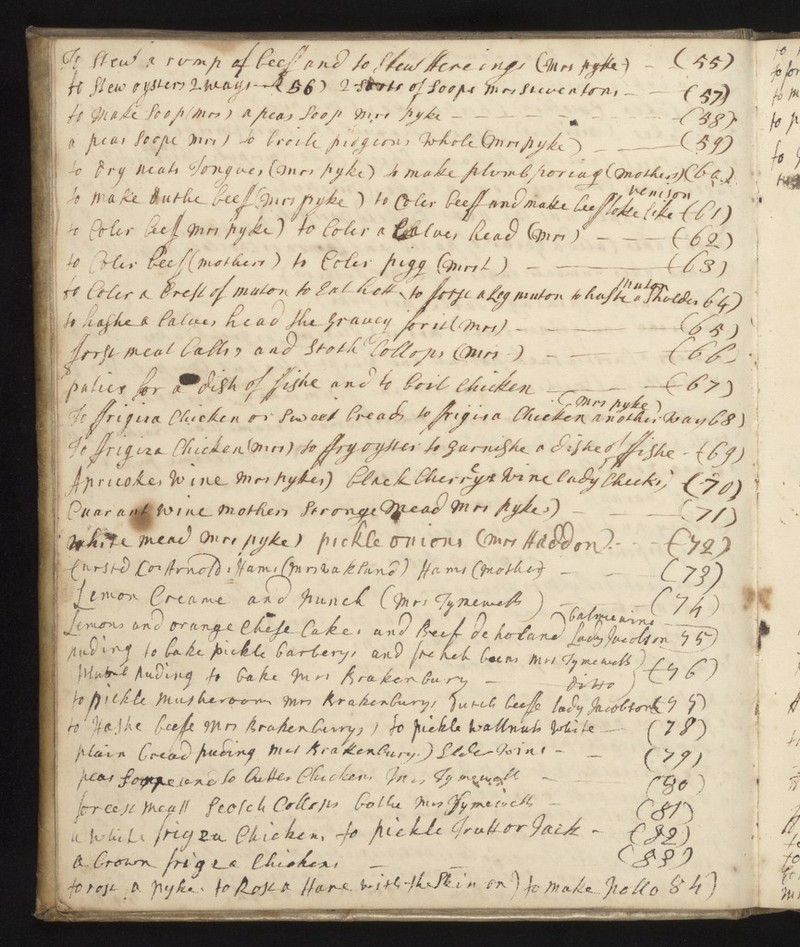 To Stew a rump of beeff and to Stew Hereings (Mrs pyke) - (55)
to Stew oysters 2 ways (56) 2 Sorts of Soope mrs steventons - (57)
to make Soop (mrs) a peas Soop mrs pyke - (58)
a peas Soope mrs) to broile pidgeons whole (Mrs pyke) (59)
to dry neats Tongues (mrs pyke) to make plumb poriag (mothers) (60)
venison
to make duthe beef (mrs pyke) to Coler beeff and make beeff loke like (61)
to Coler beeff mrs pyke) to Coler a Calves head (mrs) - (62)
to Coler beeff (mothers) to Coler pigg (mrs) - (63)
muton
to Coler a brest of muton to Eat hott to forse a Leg muton to hashe a Sholder 64)
to hashe a Calves head the Gravey for it (mrs) - (65)
forst meat balls and Scoth Collops (mrs) - (66
paties for a dish of fishe and to boil Chicken - (67)
(Mrs pyke)
To ffrigisa Chicken or Sweet breads to frigisa Chicken another way 68)
To ffrigiza Chicken (mrs) to ffry oyster to Garnishe a dishe of ffishe - (69)
Apricokes wine mrs pykes) black Cherrys wine lady Cheeks) (70)
Curant wine mothers Stronge mead mrs pykes) - (71)
white mead mrs pyke) pickle onions (mrs Haddon) - (72)
Arnolds Hams (mrs wakland) Hams (mother) - (73)
Lemon Creame and punch (Mrs Tymewells) (74)
Lemons and orange Chese Cakes and Beef de holand Lady Jacobson 75)
puding to bake pickle barberys and french beens mrs Tymewells) (76)
puding to bake mrs Brakenbury - ditto
to pickle musheroons mrs Brakenburys Dutch beefe lady Jacobson (77)
to Hashe beefe Mrs Brakenburrys) to pickle wallnuts white - (78)
plain bread puding mrs Brakenbury) Elder wine - (79)
peas Soope and to butter Chickens Mrs Tymewell - (80)
forcest meatt Scotch Collops bothe mrs Tymewells - (81)
a white frigza Chickens to pickle Jack - (82)
a brown frigza Chickens - (83)
to rost a pyke to Rost a Hare with the Skin on) to make 84)